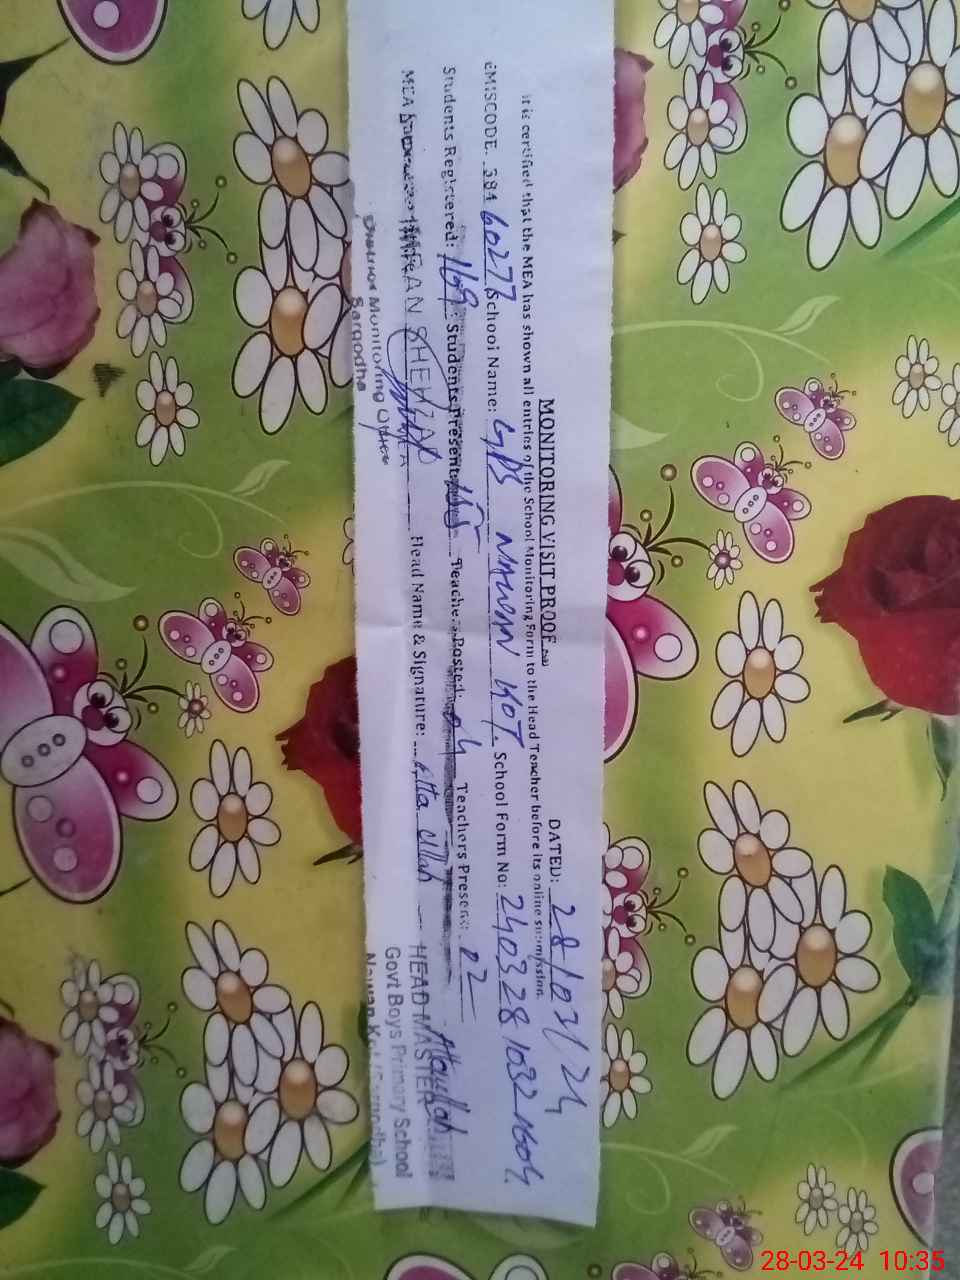 MONITORING VISIT PROOF
DATED: 28/03/24
it is certified that the MEA has shown all entries of the School Monitoring Form to the Head Teacher before its online submission.
EMISCODE. 384 60277 School Name: GPS NAWAN KOT School Form No: 240328 1032 1604
Students Registered: 169 Students Present: 155 Teachers Posted: 04 Teachers Present: 02
MEA IRFAN SHEHZAD Head Name & Signature: Atta Ullah Attaullah
District Monitoring Officer
Sargodha
HEAD MASTER
Govt Boys Primary School
Nawan Kot (Sargodha)
28-03-24 10:35